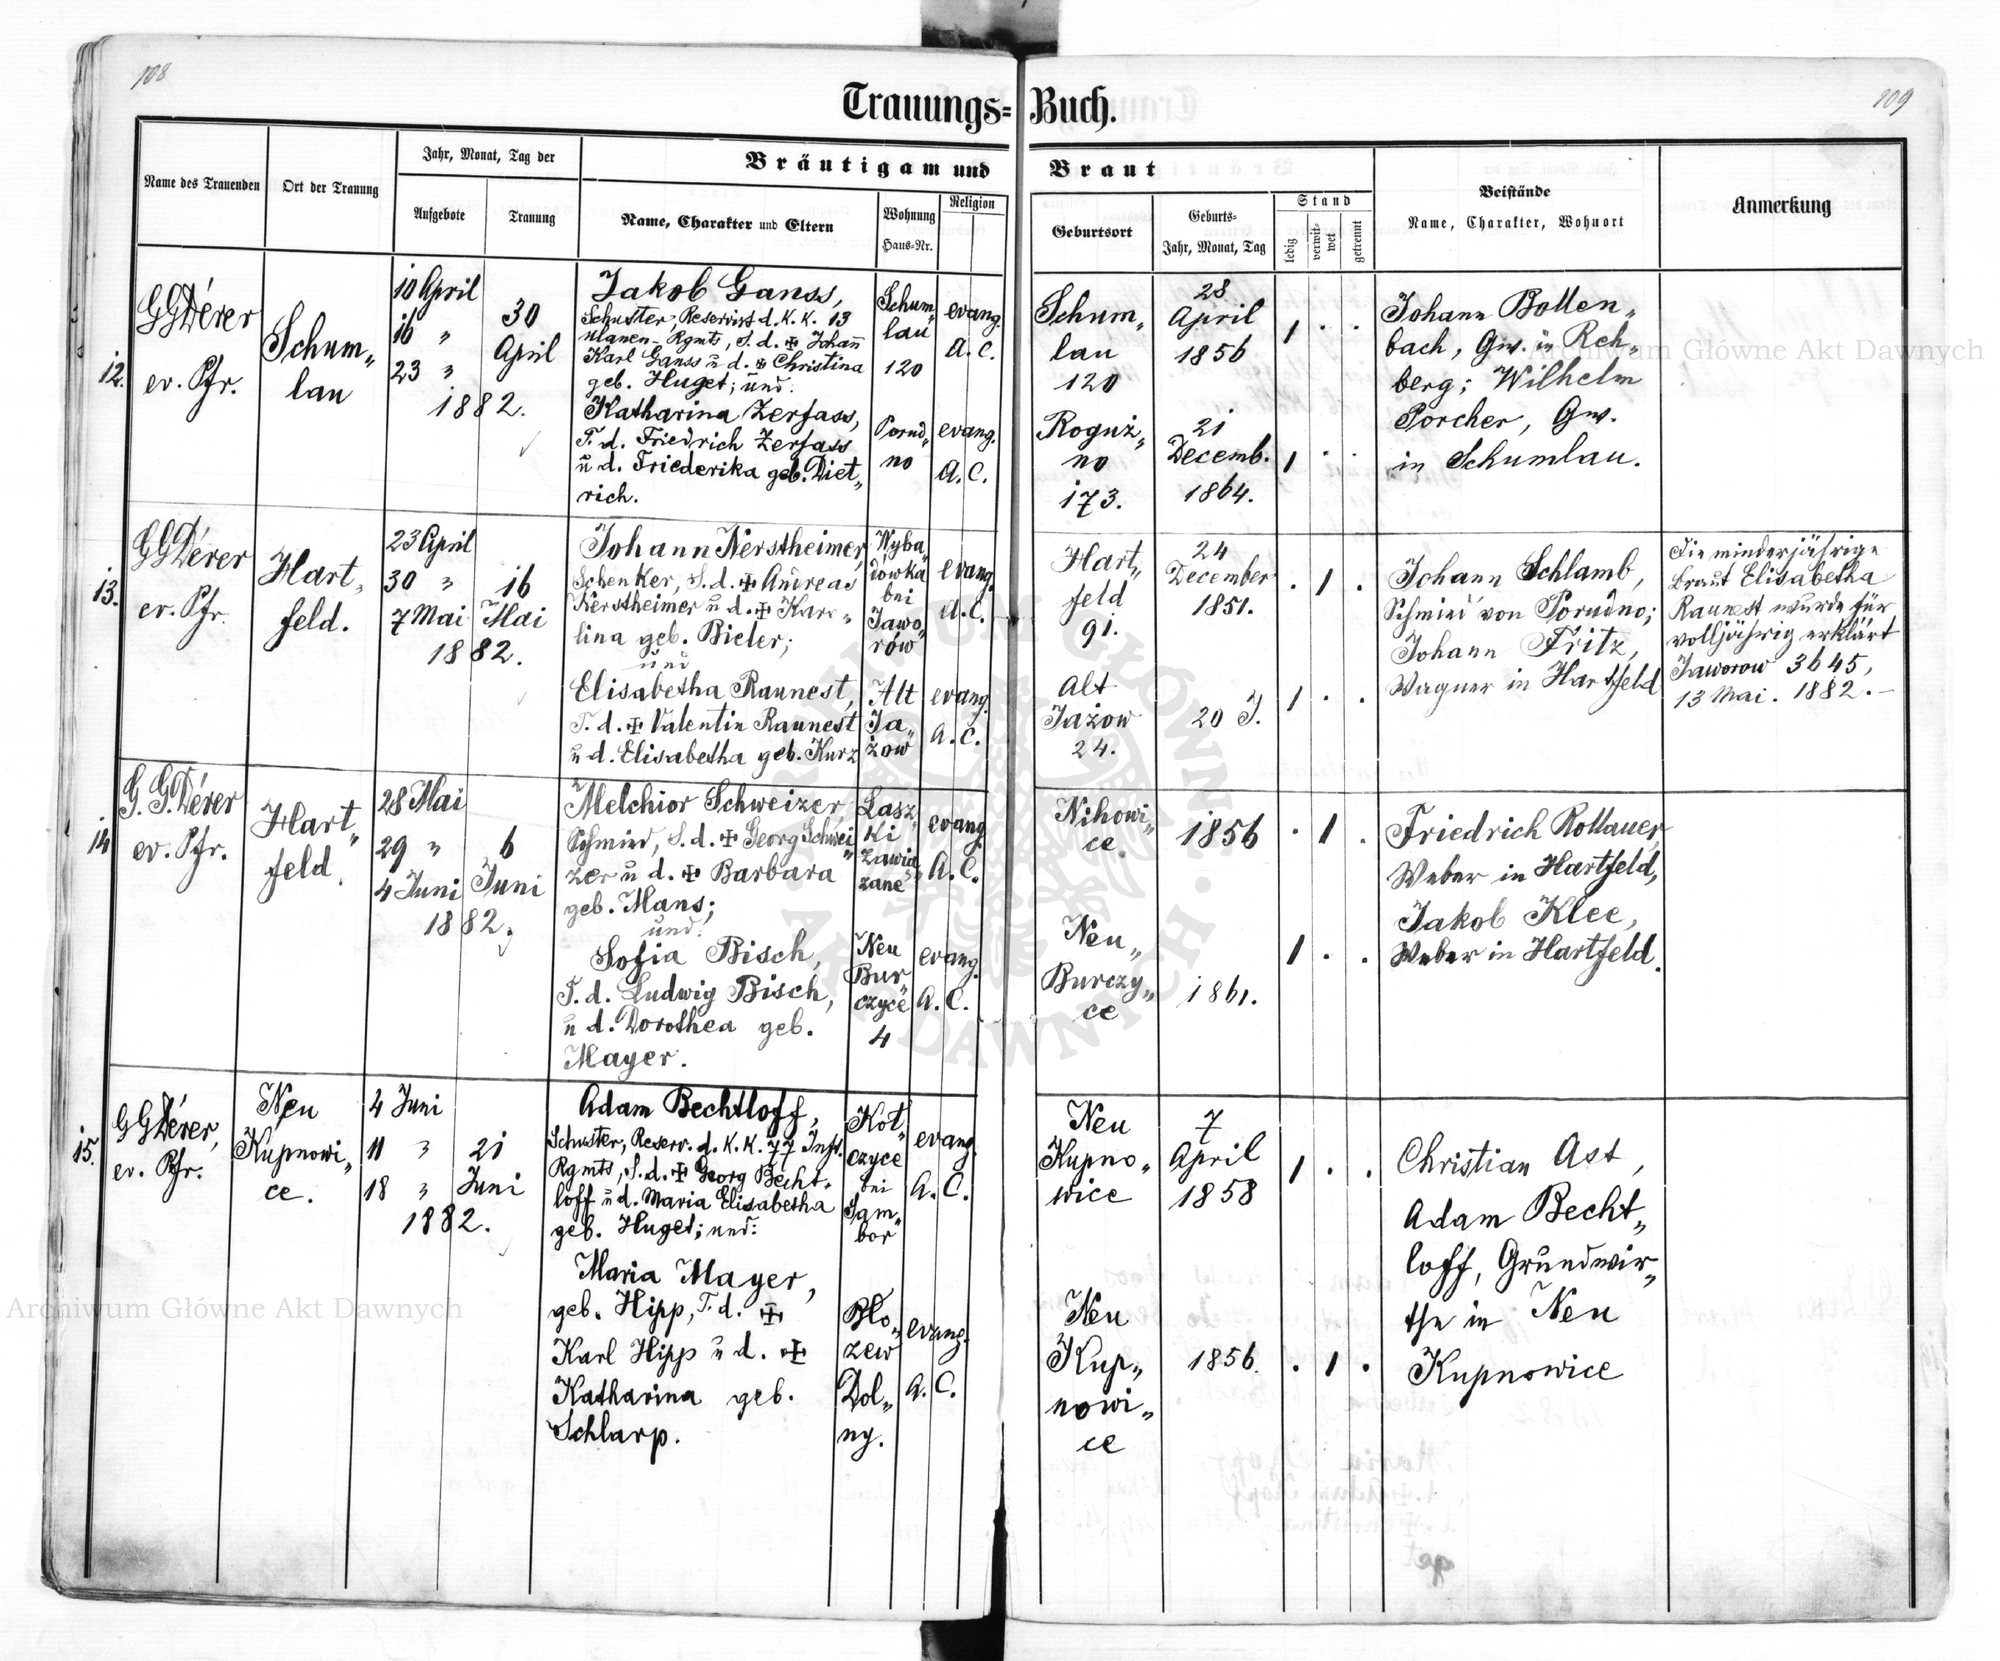 108
109
Trauungs-Buch.
Name des Trauenden
Ort der Trauung
Jahr, Monat, Tag der
Aufgebote
Trauung
Bräutigam und Braut
Name, Charakter und Eltern
Wohnung
Haus-Nr.
Religion
Geburtsort
Geburts-
Jahr, Monat, Tag
Stand
ledig
verwit-
wet
getrennt
Beistände
Name, Charakter, Wohnort
Anmerkung
12.
GGDérer
ev. Pfr.
Schum„
lau
10 April
16 "
23 "
30
April
1882.
Jakob Ganss,
Schuster, Reservist d. K. K. 13
Ulanen-Rgmts, S. d. ✠ Johann
Karl Ganss u d. ✠ Christina
geb. Huget; und:
Katharina Zerfass,
T. d. Friedrich Zerfass
u d. Friederika geb. Diet„
rich.
Schum„
lau
120
Porud„
no
evang.
A. C.
evang.
A. C.
Schum„
lau
120
Roguź„
no
173.
28
April
1856
21
Decemb.
1864.
1 . .
1 . .
Johann Bollen„
bach, Gw. in Reh„
berg; Wilhelm
Porcher, Gw.
in Schumlau.
13.
GGDérer
ev. Pfr.
Hart„
feld.
23 April
30 "
7 Mai
16
Mai
1882.
Johann Nerstheimer,
Schenker, S. d. ✠ Andreas
Nerstheimer u d. ✠ Karo„
lina geb. Bieler;
und
Elisabetha Raunest,
T. d. ✠ Valentin Raunest
u d. Elisabetha geb. Kurz
Wyba„
dowka
bei
Jawo„
rów
Alt
Ja„
żow
evang.
A. C.
evang.
A. C.
Hart„
feld
91.
Alt
Jażow
24.
24
December
1851.
20 J.
. 1 .
1 . .
Johann Schlamb,
Schmied von Porudno;
Johann Fritz,
Wagner in Hartfeld
Die minderjährige
Braut Elisabetha
Raunest wurde für
volljährig erklärt
Jaworow 3645,
13 Mai. 1882.–
14
G. GDérer
ev. Pfr.
Hart„
feld.
28 Mai
29 "
4 Juni
6
Juni
1882.
Melchior Schweizer,
Schmied, S. d. ✠ Georg Schwei„
zer u d. ✠ Barbara
geb. Mans;
und:
Sofia Bisch,
T. d. Ludwig Bisch,
u d. Dorothea geb.
Mayer.
Lasz„
ki
zawią„
zane
Neu
Bur„
czyce
4
evang.
A. C.
evang.
A. C.
Nihowi„
ce
Neu„
Burczy„
ce
1856
1861.
. 1 .
1 . .
Friedrich Rollauer,
Weber in Hartfeld,
Jakob Klee,
Weber in Hartfeld.
15.
GGDérer,
ev. Pfr.
Neu
Kupnowi„
ce.
4 Juni
11 "
18 "
21
Juni
1882.
Adam Bechtloff,
Schuster, Reserv. d. K. K. 77 Inft.
Rgmts, S. d. ✠ Georg Becht„
loff u d. Maria Elisabetha
geb. Huget; und:
Maria Mayer,
geb. Hipp, T. d. ✠
Karl Hipp u d. ✠
Katharina geb.
Schlarp.
Kot„
czyce
bei
Sam„
bor
Bło„
zew
Dol„
ny.
evang.
A. C.
evang.
A. C.
Neu
Kupno„
wice
Neu
Kup„
nowi„
ce
7
April
1858
1856.
1 . .
. 1 .
Christian Ast,
Adam Becht„
loff, Grundwir„
the in Neu
Kupnowice
Archiwum Główne Akt Dawnych
Archiwum Główne Akt Dawnych
ARCHIWUM GŁÓWNE AKT DAWNYCH